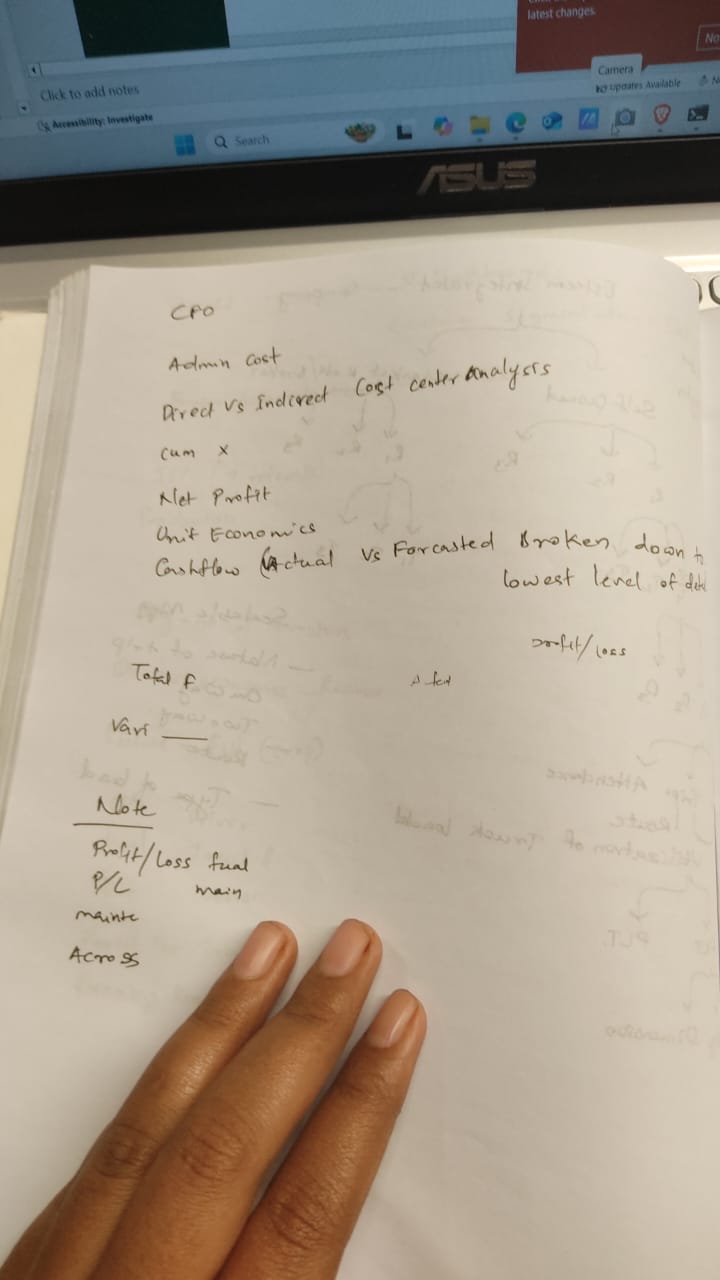 latest changes.
No
Camera
Updates Available
Click to add notes
Accessibility: Investigate
Search
ASUS
CFO
Admin cost
Direct Vs Indirect Cost center Analysis
cum x
Net Profit
Unit Economics
Cashflow (Actual Vs Forcasted Broken down to
lowest level of
profit/loss
Total F
Vari
Note
Profit/Loss fual
P/L main
mainte
Across